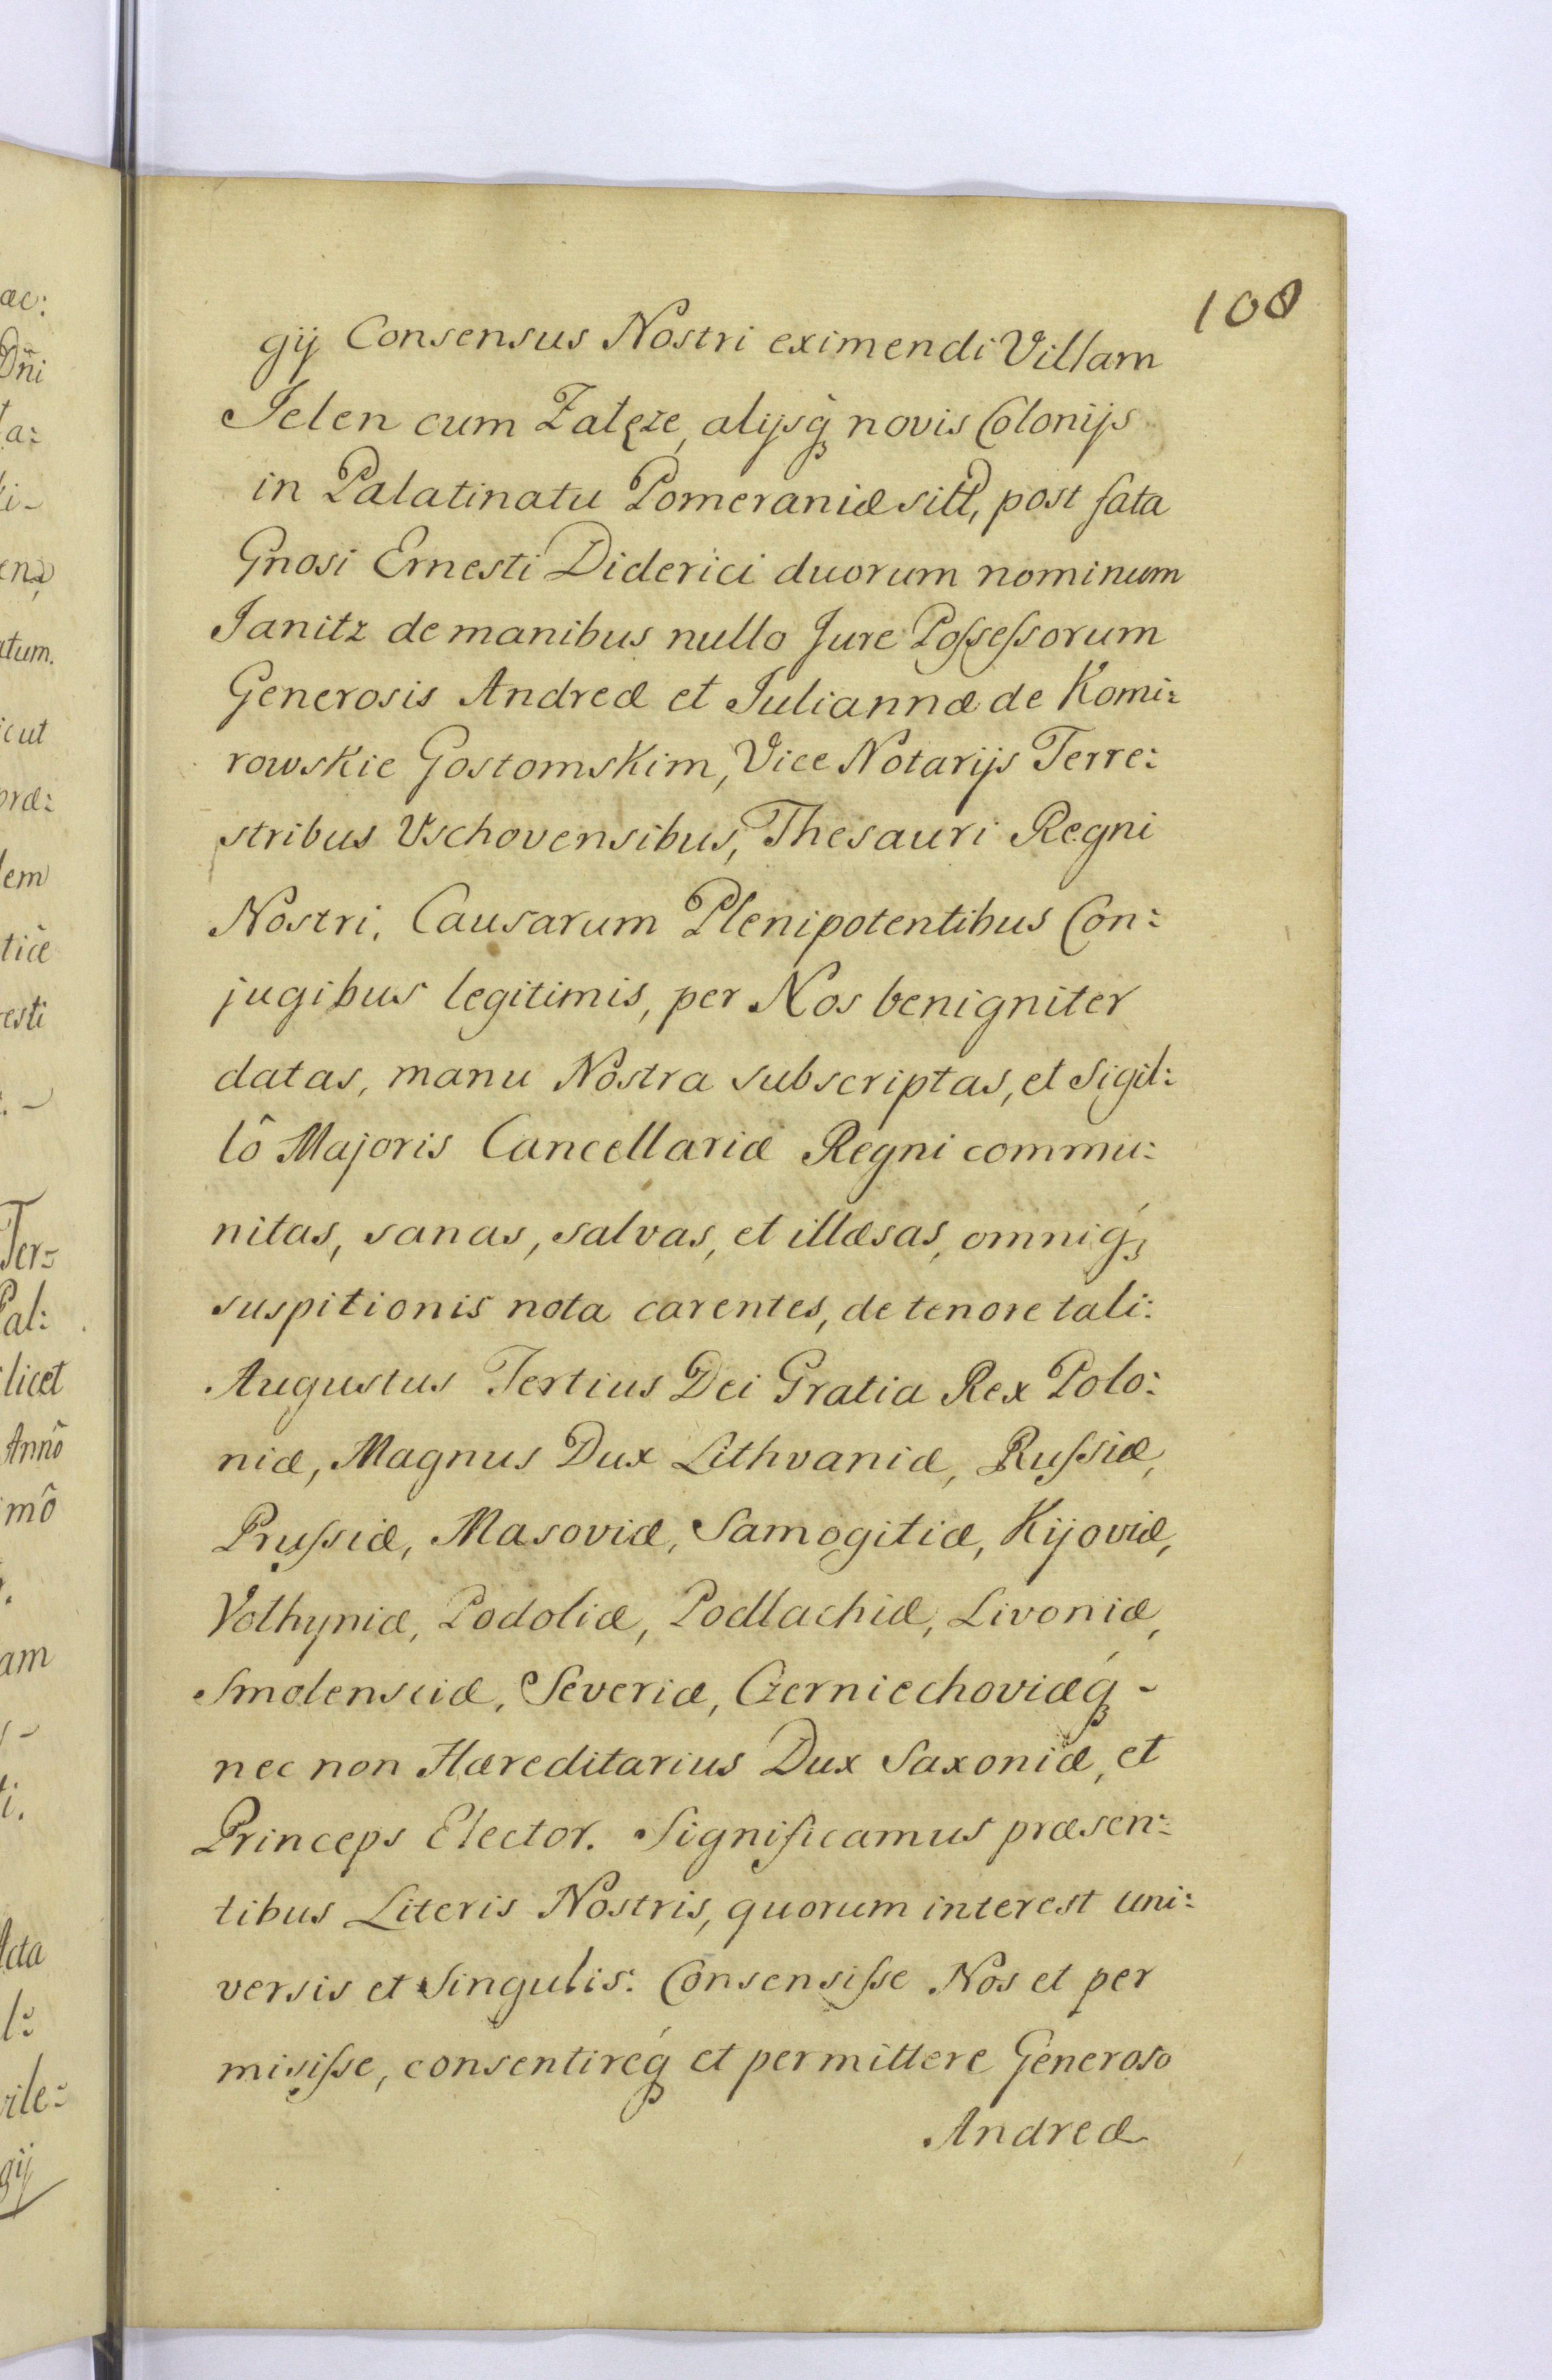 108
gij Consensus Nostri eximendi Villam
Jelen cum Zalęze, alijsq́ novis Colonijs
in Palatinatu Pomeraniæ post fata
Gnosi Ernesti Diderici duorum nominum
Janitz de manibus nullo Jure Poſseſsorum
Generosis Andreæ et Juliannæ de Komi:
rowskie Gostomskim, Vice Notarijs Terre:
stribus Vschovensibus, Thesauri Regni
Nostri, Causarum Plenipotentibus Con:
jugibus legitimis, per Nos benigniter
datas, manu Nostra subscriptas, et Sigil:
lô Majoris Cancellariæ Regni commu:
nitas, sanas, salvas, et illæsas, omniq́
suspitionis nota carentes, de tenore tali:
Augustus Tertius Dei Gratia Rex Polo:
niæ, Magnus Dux Lithvaniæ, Ruſsiæ,
Pruſsiæ, Masoviæ, Samogitiæ, Kijoviæ,
Volhyniæ, Podoliæ, Podlachiæ, Livoniæ,
Smolensciæ, Severiæ, Czerniechoviæq́ -
nec non Hæreditarius Dux Saxoniæ, et
Princeps Elector. Significamus præsen:
tibus Literis Nostris, quorum interest uni:
versis et Singulis: Consensiſse Nos et per
misiſse, consentireq́ et permittere Generoso
Andreæ
ac:
Dñi
ta:
ki-
atum.
icut
præ:
dem
Ter-
Pal:
licet
Annô
imô
am
Acta
vile:
gij